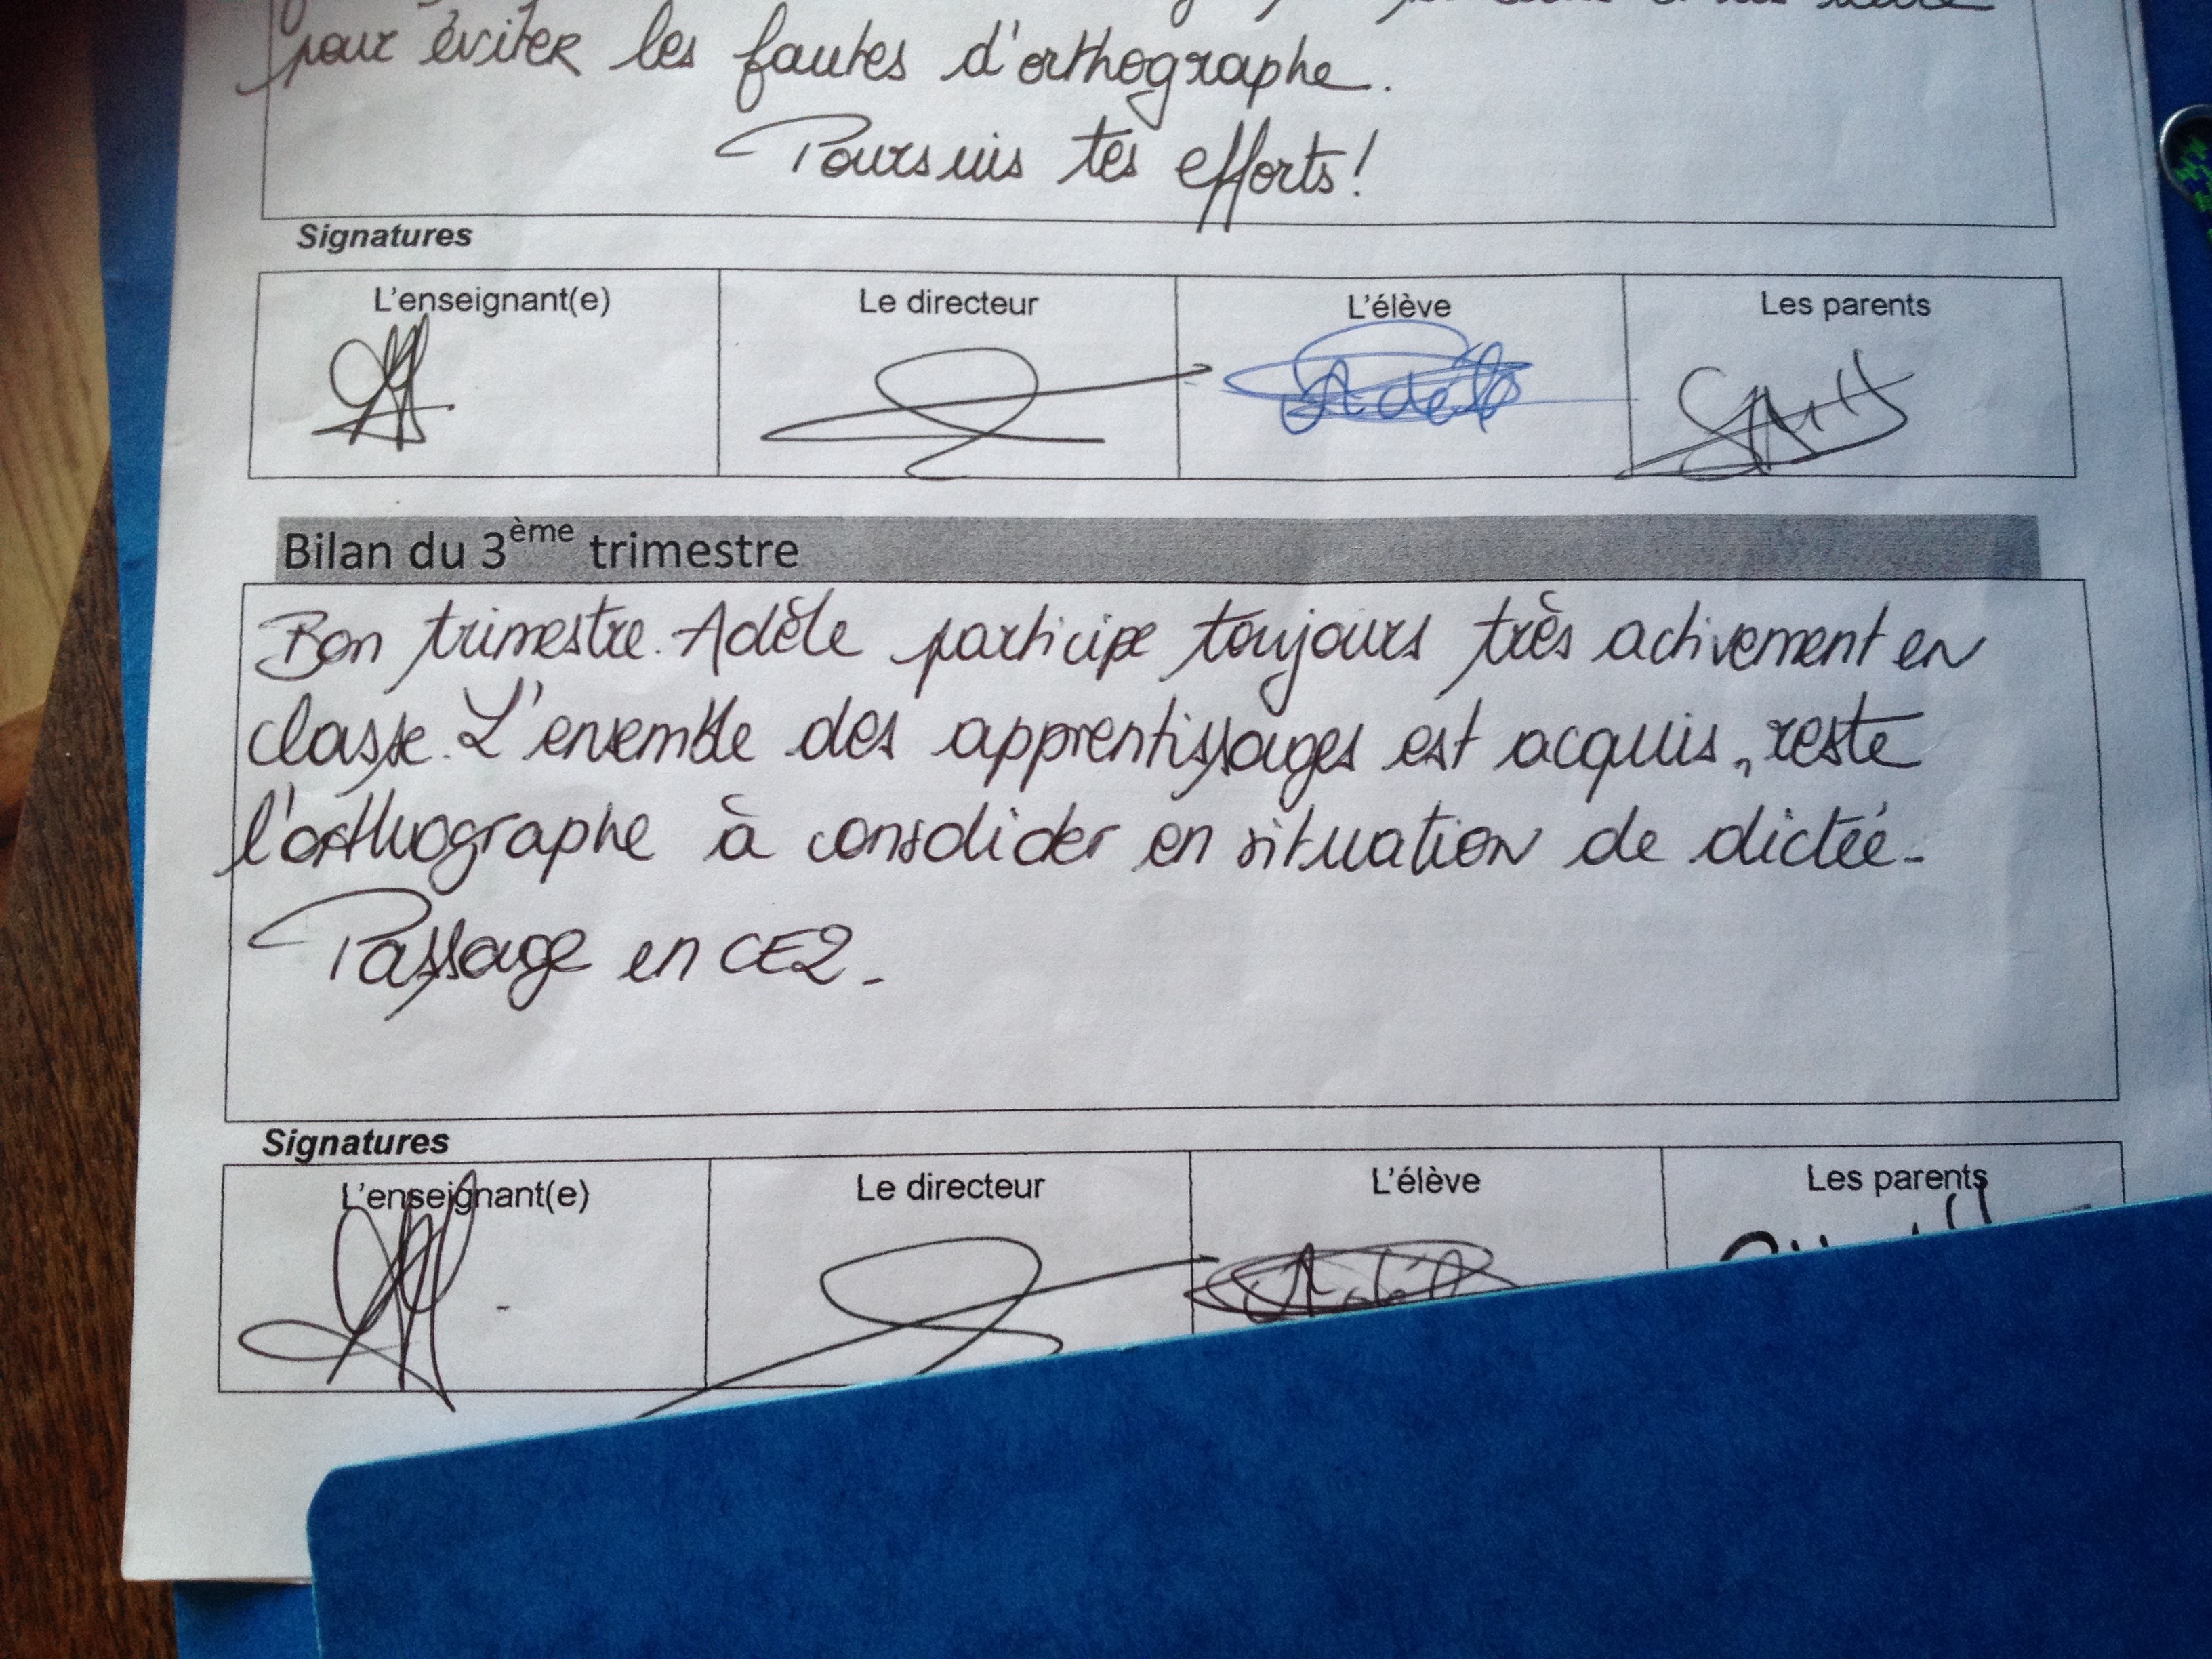 pour éviter les fautes d'orthographe.
Poursuis tes efforts!
Signatures
L'enseignant(e) Le directeur L'élève Les parents
Adèle
Bilan du 3ème trimestre
Bon trimestre. Adèle participe toujours très activement en
classe. L'ensemble des apprentissages est acquis, reste
l'orthographe à consolider en situation de dictée.
Passage en CE2.
Signatures
L'enseignant(e) Le directeur L'élève Les parents
Adèle